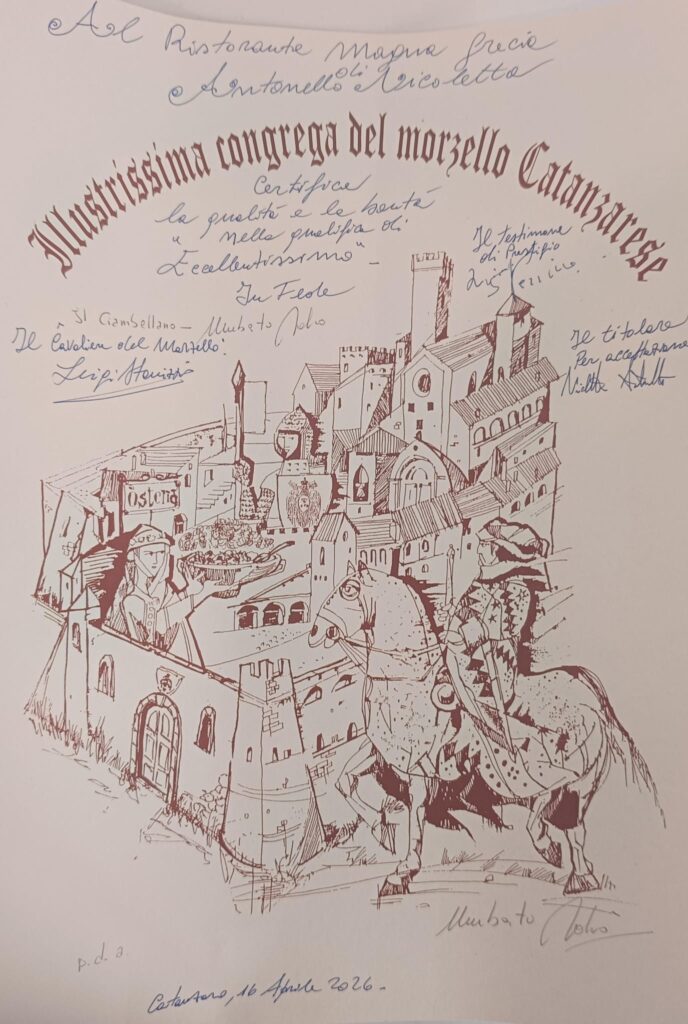 Al Ristorante Magna Grecia
di
Antonello Nicoletta
Illustrissima congrega del morzello Catanzarese
Certifica
la qualità e la bontà
"nella qualifica di
Eccellentissimo" -
In Fede
Il testimone
di Prestigio
Il Ciambellano - Umberto
Il Cavaliere del Morzello:
Luigi Stanizzi
Il titolare
Per accettazione
osteria
Umberto
p.d.a.
Catanzaro, 16 Aprile 2026 -